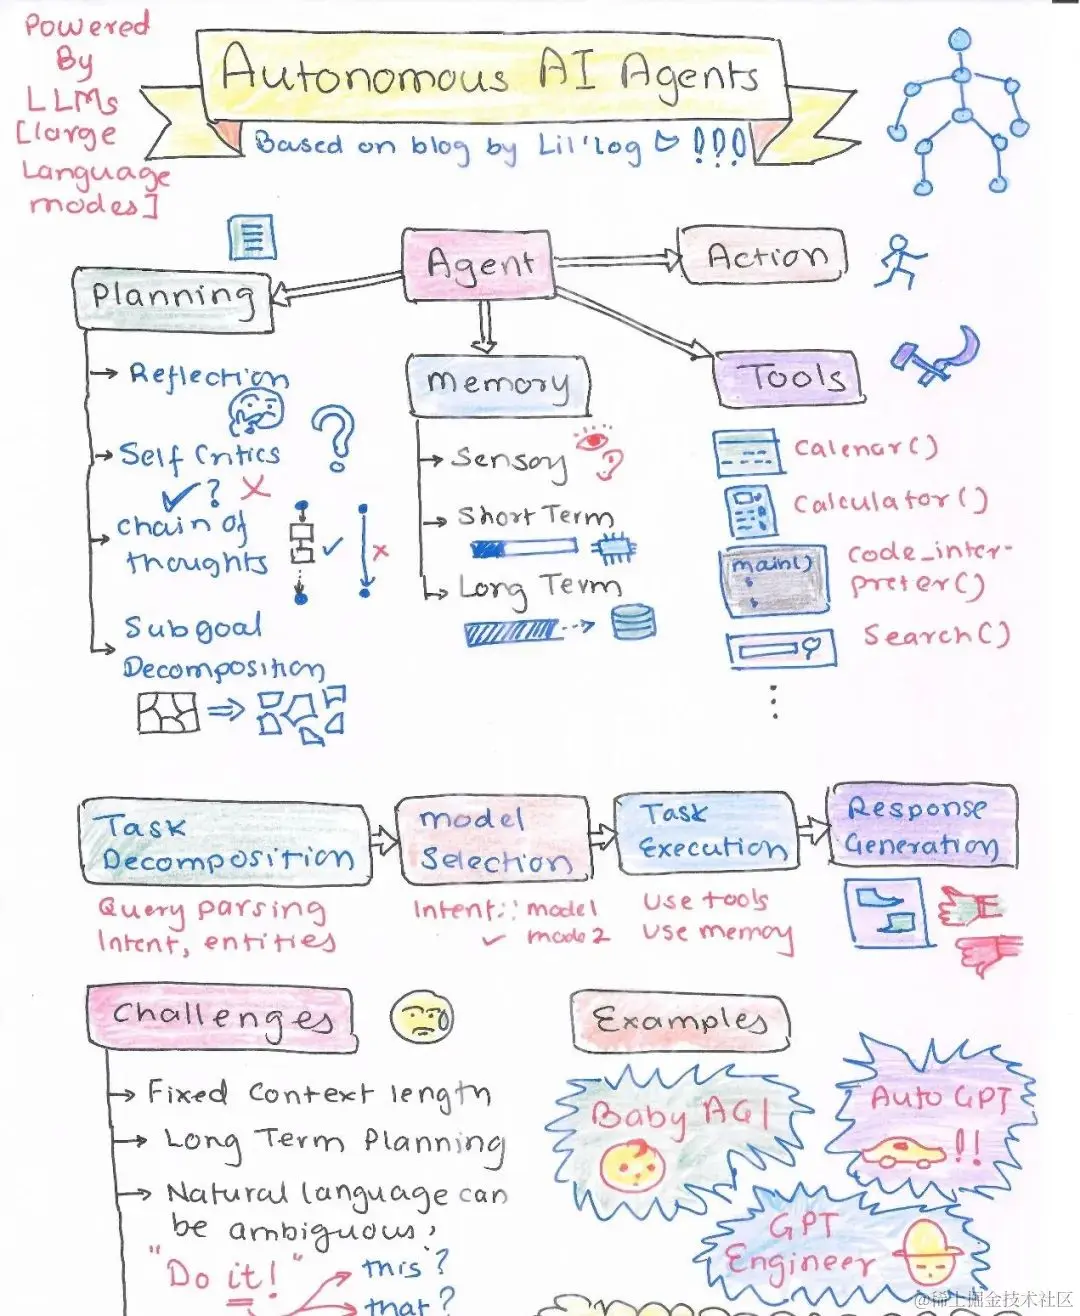 Powered
By
LLMs
[large
Language
modes]
Autonomous AI Agents
Based on blog by Lil'log !!!
Agent
Action
Planning
Reflection
Self Critics
? 
chain of
thoughts
Subgoal
Decomposition
Memory
Sensory
Short Term
Long Term
Tools
Calenar()
Calculator()
main()
code_inter-
preter()
Search()
Task
Decomposition
Query parsing
Intent, entities
Model
Selection
Intent:: model1
mode2
Task
Execution
Use tools
Use memoy
Response
Generation
Challenges
Fixed Context length
Long Term Planning
Natural language can
be ambiguous,
"Do it!"
this?
that?
Examples
Baby AGI
Auto GPT
!!
GPT
Engineer
@稀土掘金技术社区